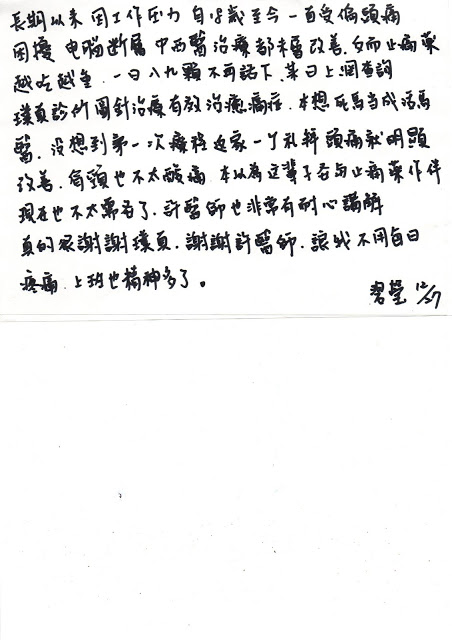 長期以來 因工作压力 自18歲至今 一直受偏頭痛
困擾 电腦断層 中西醫治療都未曾改善,反而止痛藥
越吃越重 一日八九顆不再話下,某日上網查詢
璞真診所圓針治療有效治癒痛症,本想死馬当成活馬
醫,沒想到第一次療程返家一个礼拜頭痛就明顯
改善,肩頸也不太酸痛 本以為这輩子否与止痛藥作伴
現在也不太需吞了,許醫師也非常有耐心講解
真的很謝謝璞真,謝謝許醫師,讓我不用每日
疼痛,上班也精神多了。
碧瑩 12/27